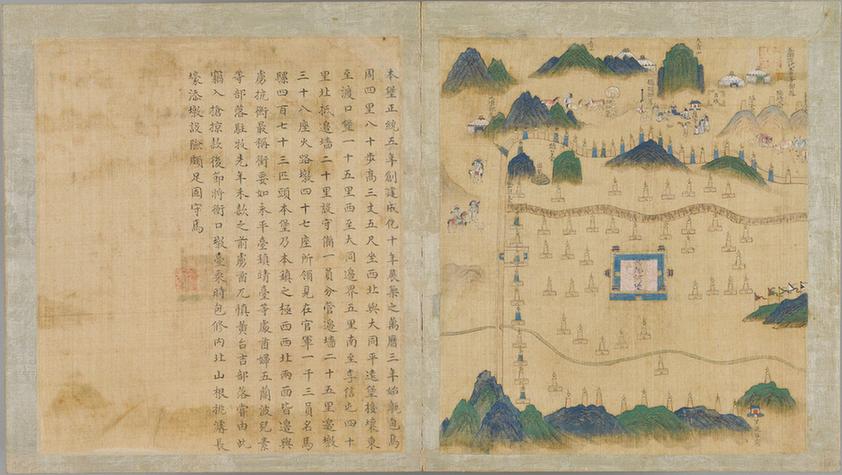 本堡正統五年創建成化十年展築之萬曆三年始甎包焉
周四里八十步高三丈五尺坐西北與大同平遠堡接壤東
至渡口堡一十五里西至大同邊界五里南至李信屯四十
里北抵邊墻二十里設守備一員分管邊墻二十五里邊墩
三十八座火路墩四十七座所領見在官軍一千三員名馬
騾四百七十三匹頭本堡乃本鎮之極西西北兩面皆邊與
虜抗衡最稱衝要如永平臺鎮靖臺等處酋婦五蘭波兒素
等部落駐牧先年未款之前虜酋兀慎黃台吉部落嘗由此
竊入搶掠款後節將衝口墩臺乘時包修內北山根挑濬長
壕添墩設險頗足固守焉